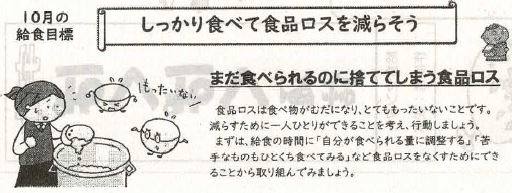 10月の
給食目標
しっかり食べて食品ロスを減らそう
もったいない
まだ食べられるのに捨ててしまう食品ロス
食品ロスは食べ物がむだになり、とてももったいないことです。
減らすために一人ひとりができることを考え、行動しましょう。
まずは、給食の時間に「自分が食べられる量に調整する」「苦
手なものもひとくち食べてみる」など食品ロスをなくすためにでき
ることから取り組んでみましょう。